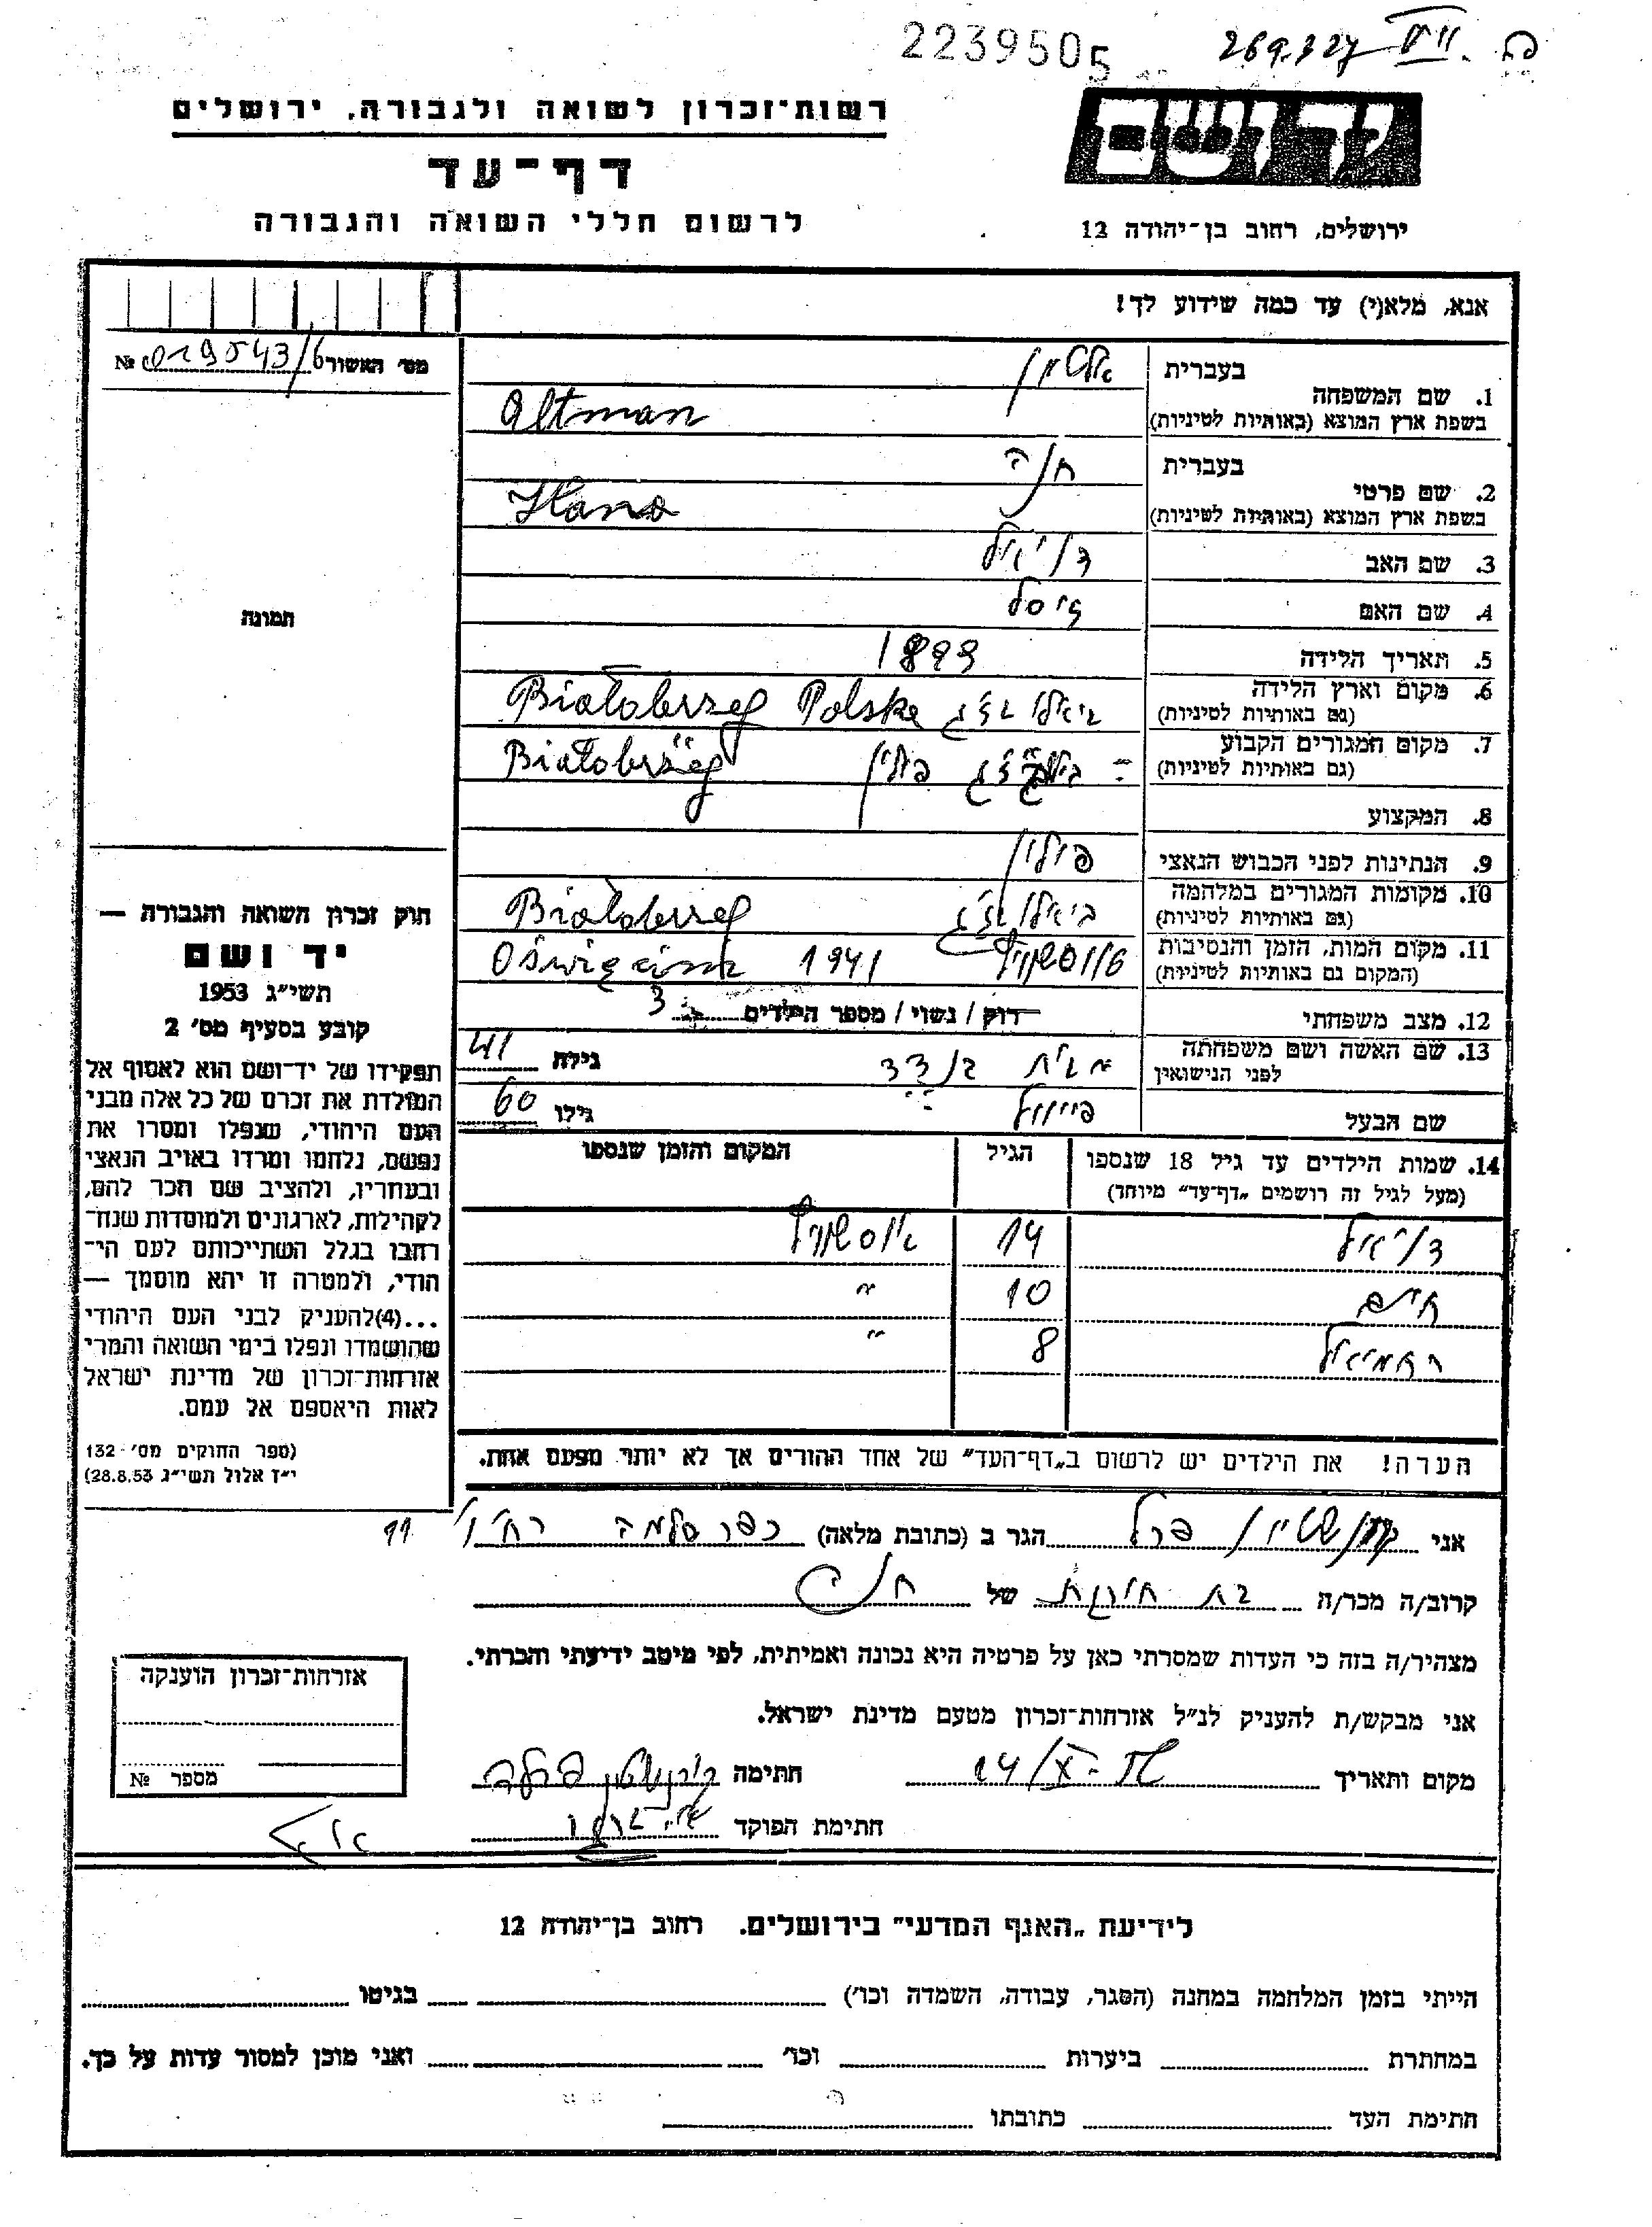 2239505
269.327
רשות־זכרון לשואה ולגבורה, ירושלים
דף־עד
לרשום חללי השואה והגבורה
ידושם
ירושלים, רחוב בן־יהודה 12
אנא, מלא(י) עד כמה שידוע לך!
מס׳ האשור 019543/6 №
תמונה
1. שם המשפחה
בעברית אלטמן
בשפת ארץ המוצא (באותיות לטיניות) Altman
2. שם פרטי
בעברית חנה
בשפת ארץ המוצא (באותיות לטיניות) Hana
3. שם האב דניאל
4. שם האם
5. תאריך הלידה 1899
6. מקום וארץ הלידה
(גם באותיות לטיניות) Białobrzeg Polska
7. מקום המגורים הקבוע
(גם באותיות לטיניות) פולין Białobrzeg
8. המקצוע
9. הנתינות לפני הכבוש הנאצי פולין
10. מקומות המגורים במלחמה
(גם באותיות לטיניות) Białobrzeg
11. מקום המות, הזמן והנסיבות
(המקום גם באותיות לטיניות) 1941 Oświęcim
12. מצב משפחתי רווק / נשוי / מספר הילדים 3
13. שם האשה ושם משפחתה
לפני הנישואין גילה 41
שם הבעל פייוול גילו 60
14. שמות הילדים עד גיל 18 שנספו
(מעל לגיל זה רושמים „דף־עד״ מיוחד)
הגיל
המקום והזמן שנספו
דניאל 14 אושוויץ
חיים 10 ״
ירחמיאל 8 ״
הערה! את הילדים יש לרשום ב„דף־העד״ של אחד ההורים אך לא יותר מפעם אחת.
חוק זכרון השואה והגבורה —
יד ושם
תשי״ג 1953
קובע בסעיף מס׳ 2
תפקידו של יד־ושם הוא לאסוף אל
המולדת את זכרם של כל אלה מבני
העם היהודי, שנפלו ומסרו את
נפשם, נלחמו ומרדו באויב הנאצי
ובעוזריו, ולהציב שם וזכר להם,
לקהילות, לארגונים ולמוסדות שנח־
רבו בגלל השתייכותם לעם הי־
הודי, ולמטרה זו יהא מוסמך —
...(4)להעניק לבני העם היהודי
שהושמדו ונפלו בימי השואה והמרי
אזרחות־זכרון של מדינת ישראל
לאות היאספם אל עמם.
(ספר החוקים מס׳ 132
י״ז אלול תשי״ג 28.8.53)
אני פרל הגר ב (כתובת מלאה) כפר סלמה 11
קרוב/ה מכר/ה של חנה
מצהיר/ה בזה כי העדות שמסרתי כאן על פרטיה היא נכונה ואמיתית, לפי מיטב ידיעתי והכרתי.
אני מבקש/ת להעניק לנ״ל אזרחות־זכרון מטעם מדינת ישראל.
מקום ותאריך 14/X- חתימה
חתימת הפוקד
אזרחות־זכרון הוענקה
מספר №
לידיעת „האגף המדעי״ בירושלים. רחוב בן־יהודה 12
הייתי בזמן המלחמה במחנה (הסגר, עבודה, השמדה וכו׳) בגיטו
במחתרת ביערות וכו׳ ואני מוכן למסור עדות על כך.
חתימת העד כתובתו